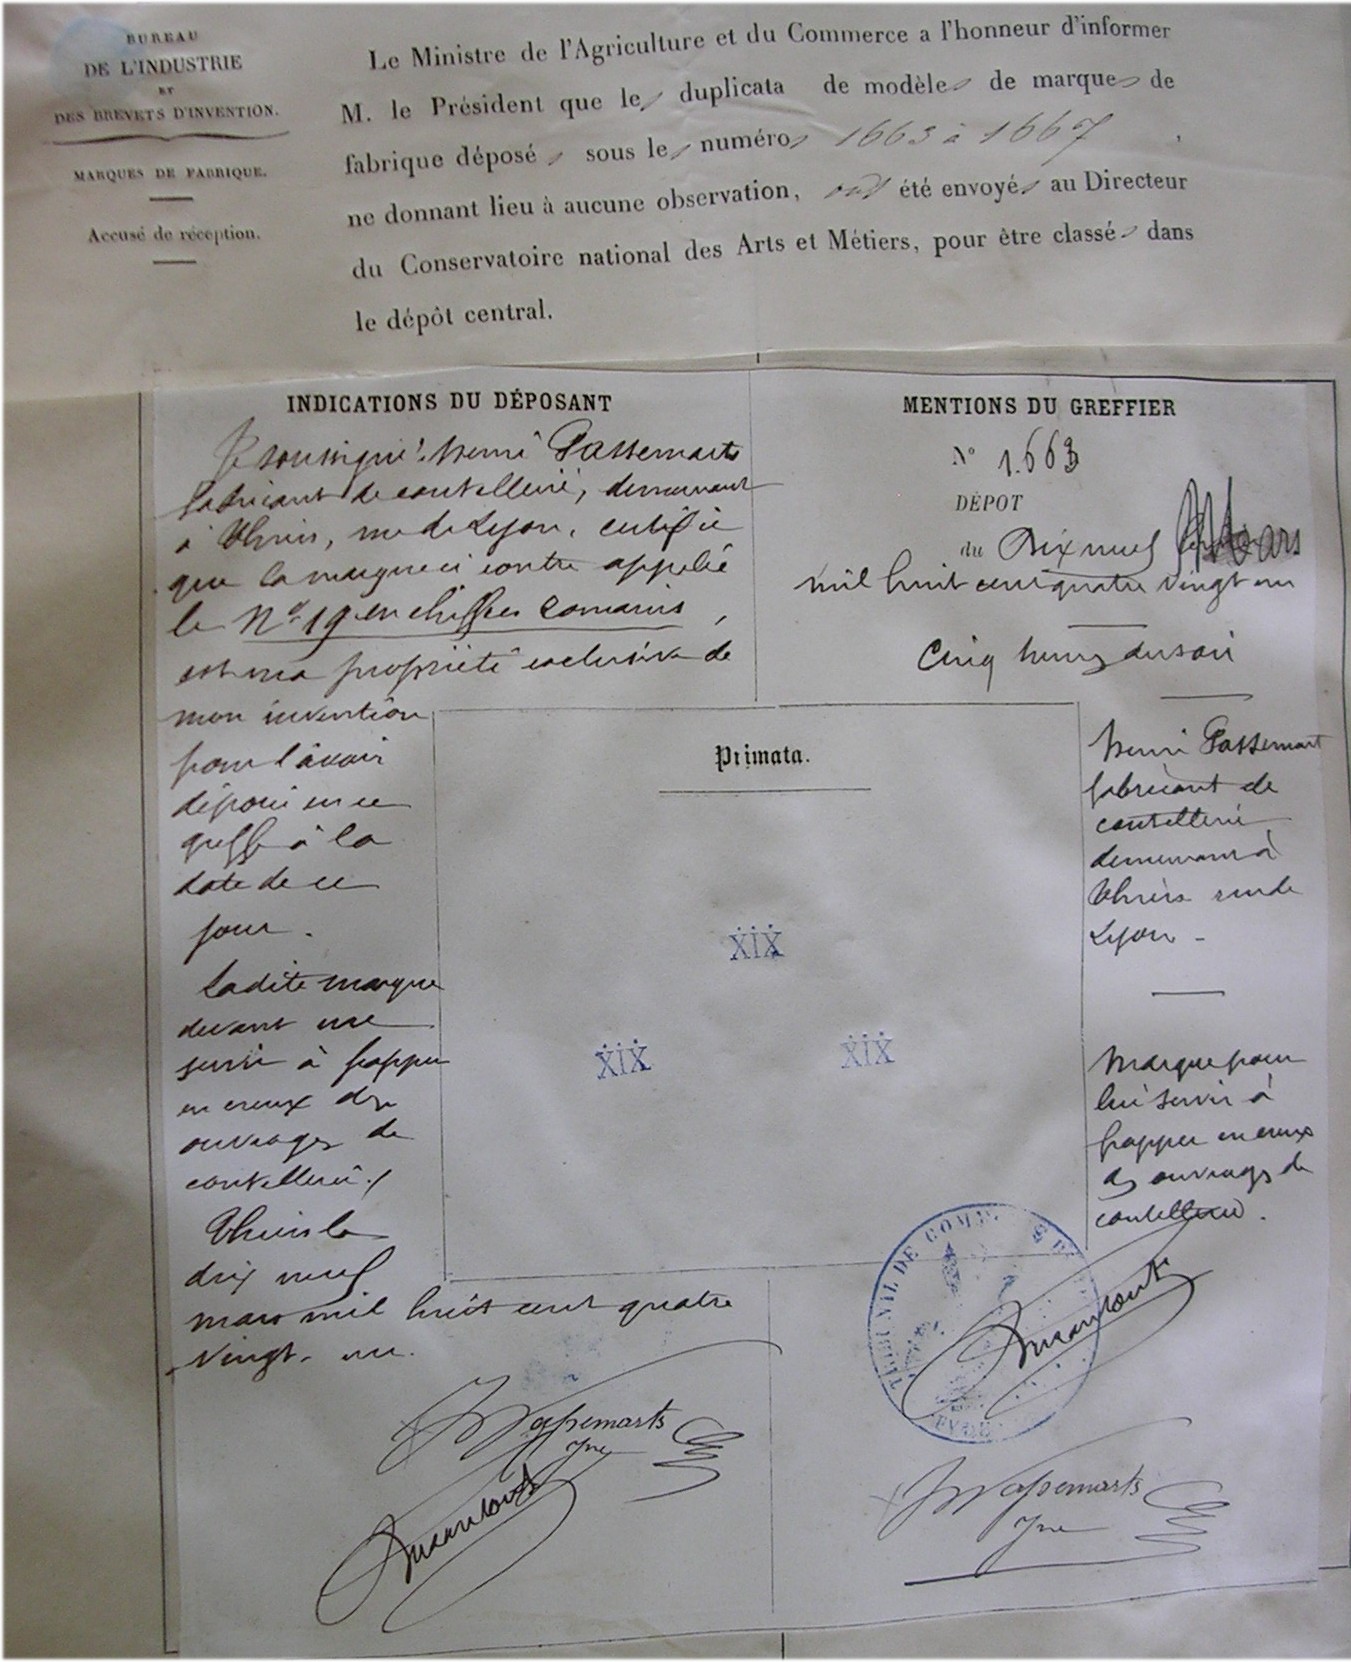 BUREAU
DE L'INDUSTRIE
ET
DES BREVETS D'INVENTION.
MARQUES DE FABRIQUE.
Accusé de réception.
Le Ministre de l'Agriculture et du Commerce a l'honneur d'informer
M. le Président que les duplicata de modèles de marques de
fabrique déposés sous les numéros 1663 à 1667,
ne donnant lieu à aucune observation, ont été envoyés au Directeur
du Conservatoire national des Arts et Métiers, pour être classés dans
le dépôt central.
INDICATIONS DU DÉPOSANT
Je soussigné henri Passemarts
fabricant de coutellerie, demeurant
à Thiers, rue de Lyon, certifie
que la marque ci contre appelée
le No. 19 en chiffres romains,
est ma propriété exclusive de
mon invention
pour l'avoir
déposée en ce
greffe à la
date de ce
jour.
Ladite marque
devant me
servir à frapper
en creux des
ouvrages de
coutellerie./
Thiers le
dix neuf
mars mil huit cent quatre
vingt-un.
MENTIONS DU GREFFIER
No 1.663
DÉPOT
du Dix neuf Mars
mil huit cent quatre vingt un
Cinq heures du soir
Primata.
XIX
XIX XIX
henri Passemart
fabricant de
coutellerie
demeurant à
Thiers rue de
Lyon -
Marque pour
lui servir à
frapper en creux
des ouvrages de
coutellerie.
TRIBUNAL DE COMM
HPassemarts
Jne
HPassemarts
Jne